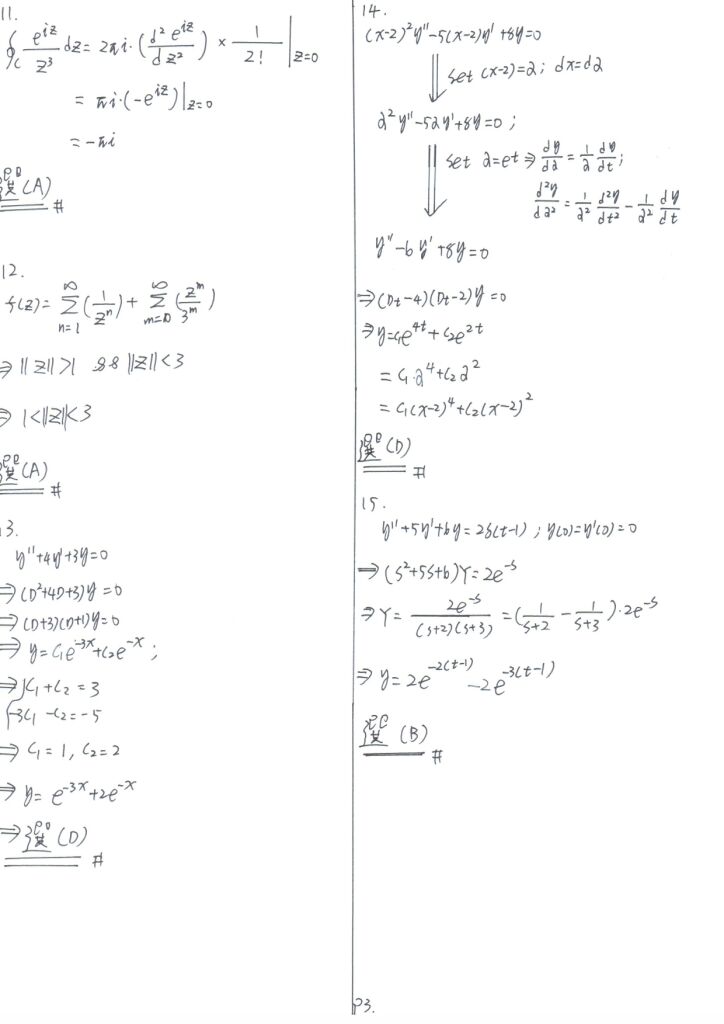 11.
∮_C e^{iz}/z³ dz = 2πi·(d² e^{iz}/dz²) × 1/2! |_{z=0}
= πi·(-e^{iz})|_{z=0}
= -πi
選(A) #
12.
f(z) = Σ_{n=1}^{∞} (1/z^n) + Σ_{m=0}^{∞} (z^m/3^m)
⇒ ||z||>1 && ||z||<3
⇒ 1<||z||<3
選(A) #
13.
y''+4y'+3y=0
⇒ (D²+4D+3)y=0
⇒ (D+3)(D+1)y=0
⇒ y=c₁e^{-3x}+c₂e^{-x};
⇒ { c₁+c₂=3
-3c₁-c₂=-5
⇒ c₁=1, c₂=2
⇒ y= e^{-3x}+2e^{-x}
⇒ 選(D) #
14.
(x-2)²y''-5(x-2)y'+8y=0
⇓ set (x-2)=z; dx=dz
z²y''-5zy'+8y=0;
⇓ set z=e^t ⇒ dy/dz = 1/z dy/dt;
d²y/dz² = 1/z² d²y/dt² - 1/z² dy/dt
y''-6y'+8y=0
⇒ (Dt-4)(Dt-2)y=0
⇒ y=c₁e^{4t}+c₂e^{2t}
= c₁·z⁴+c₂z²
= c₁(x-2)⁴+c₂(x-2)²
選(D) #
15.
y''+5y'+6y=2δ(t-1); y(0)=y'(0)=0
⇒ (s²+5s+6)Y=2e^{-s}
⇒ Y= 2e^{-s}/((s+2)(s+3)) = (1/(s+2) - 1/(s+3))·2e^{-s}
⇒ y=2e^{-2(t-1)} -2e^{-3(t-1)}
選(B) #
P3.